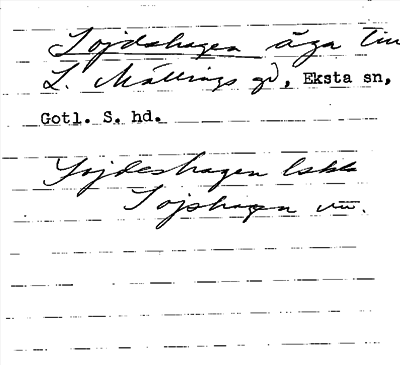 Sojdshagen äga till
L. Mällings gd, Eksta sn,
Gotl. S. hd.
Sojdeshagen
Sojshagen